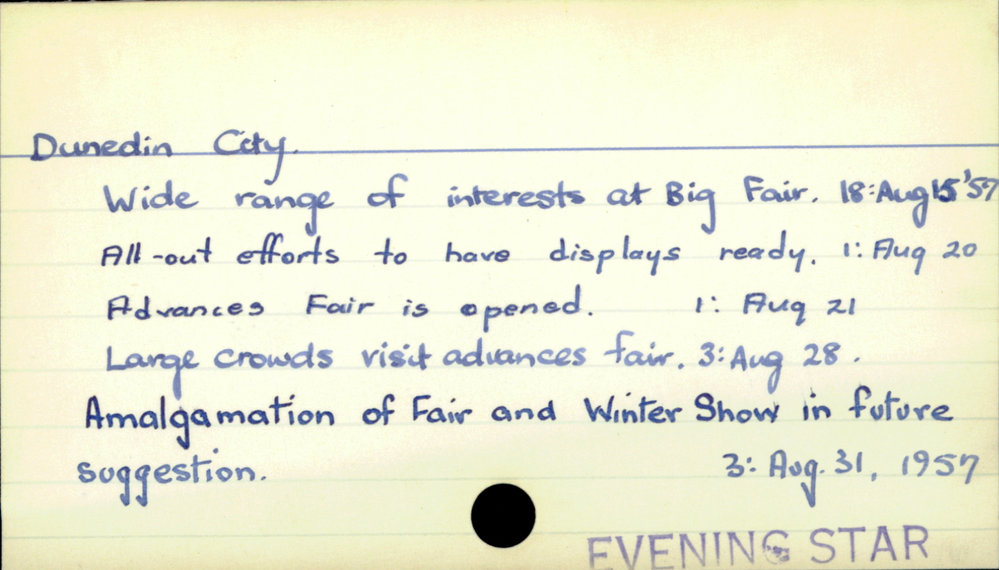 Dunedin City.
Wide range of interests at Big Fair. 18: Aug 15 '57
All-out efforts to have displays ready. 1: Aug 20
Advances Fair is opened. 1: Aug 21
Large crowds visit advances fair. 3: Aug 28.
Amalgamation of Fair and Winter Show in future
suggestion. 3: Aug. 31, 1957
EVENING STAR